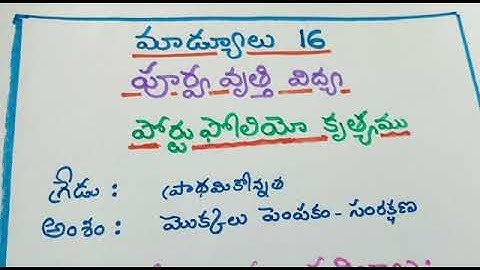 మాడ్యూలు 16
పూర్వ వృత్తి విద్య
పోర్టుఫోలియో కృత్యము
గ్రేడు : ప్రాథమికోన్నత
అంశం : మొక్కలు పెంపకం - సంరక్షణ